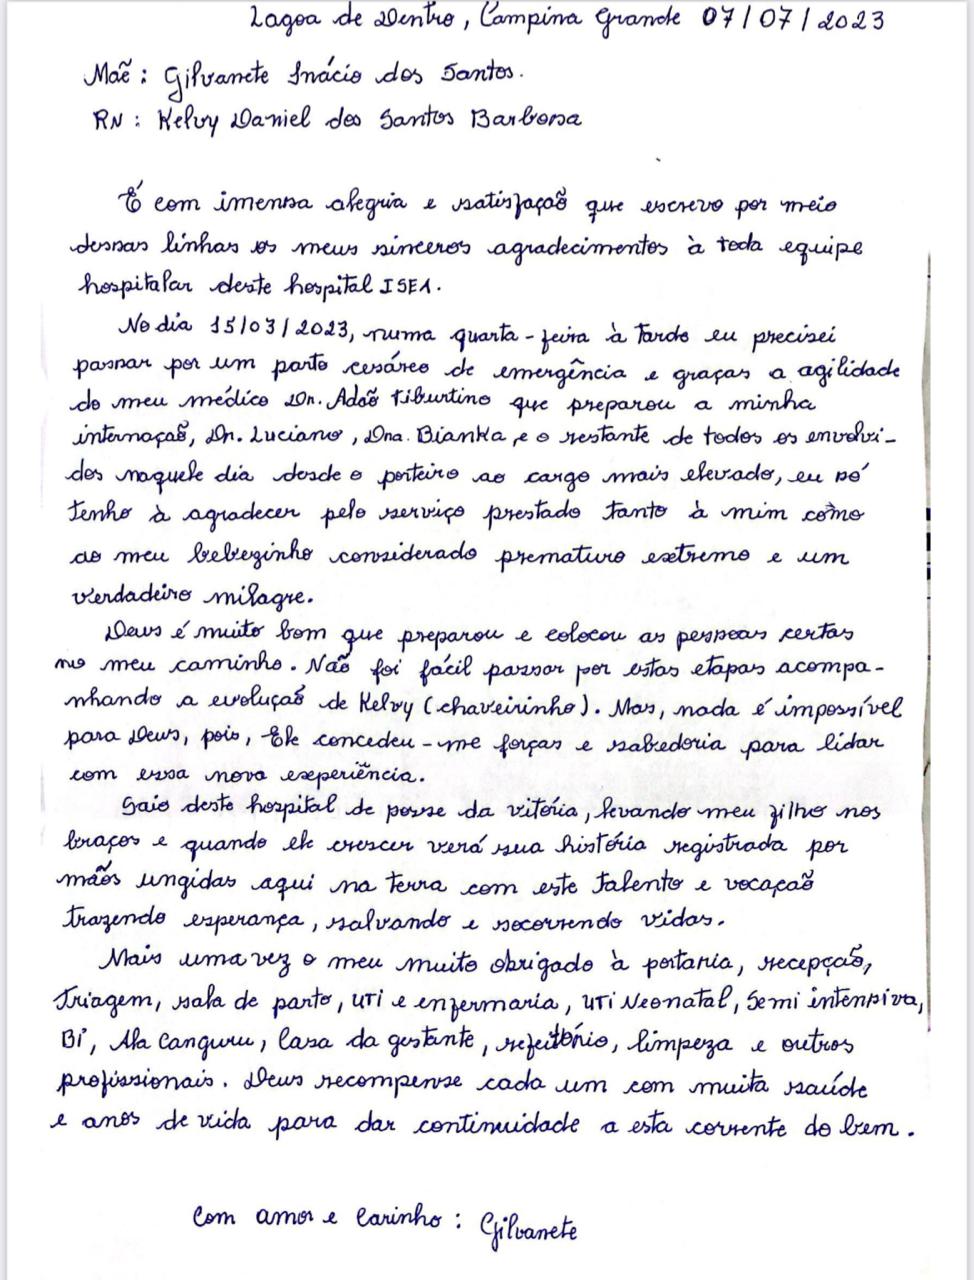 Lagoa de Dentro, Campina Grande 07/07/2023
Maẽ: Gilvanete Inácio dos Santos.
RN: Kelvy Daniel dos Santos Barbosa
É com imensa alegria e satisfaçaõ que escrevo por meio
dessas linhas os meus sinceros agradecimentos à toda equipe
hospitalar deste hospital ISEA.
No dia 15/03/2023, numa quarta-feira à tarde eu precisei
passar por um parto cesáreo de emergência e graças a agilidade
do meu médico Dr. Adaõ Tiburtino que preparou a minha
internaçaõ, Dr. Luciano, Dra. Bianka, e o restante de todos os envolvi-
dos naquele dia desde o porteiro ao cargo mais elevado, eu só
tenho à agradecer pelo serviço prestado tanto à mim como
ao meu bebezinho considerado prematuro extremo e um
verdadeiro milagre.
Deus é muito bom que preparou e colocou as pessoas certas
no meu caminho. Naõ foi fácil passar por estas etapas acompa-
nhando a evoluçaõ de Kelvy (chaveirinho). Mas, nada é impossível
para Deus, pois, Ele concedeu-me forças e sabedoria para lidar
com essa nova experiência.
Saio deste hospital de posse da vitória, levando meu filho nos
braços e quando ele crescer verá sua história registrada por
maõs ungidas aqui na terra com este talento e vocaçaõ
trazendo esperança, salvando e socorrendo vidas.
Mais uma vez o meu muito obrigado à portaria, recepçaõ,
triagem, sala de parto, UTI e enfermaria, UTI Neonatal, Semi intensiva,
BI, Ala Canguru, Casa da gestante, refeitório, limpeza e outros
profissionais. Deus recompense cada um com muita saúde
e anos de vida para dar continuidade a esta corrente do bem.
Com amor e carinho: Gilvanete